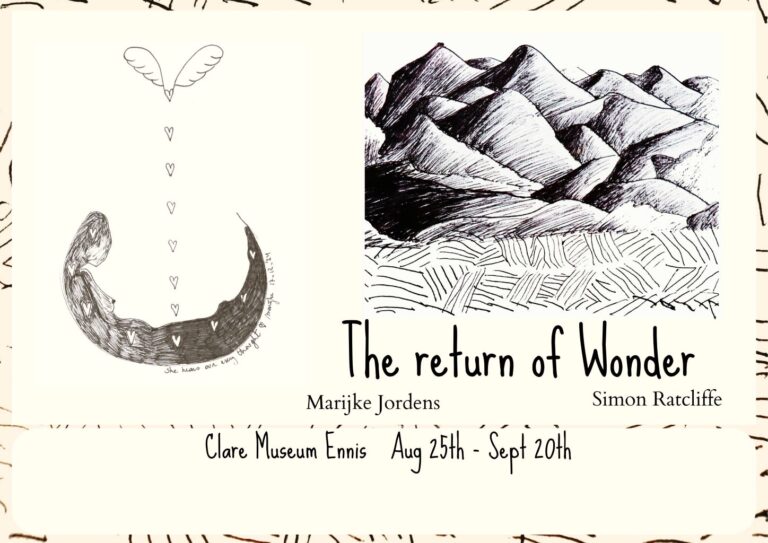 she hears our every thought
The return of Wonder
Marijke Jordens
Simon Ratcliffe
Clare Museum Ennis Aug 25th - Sept 20th